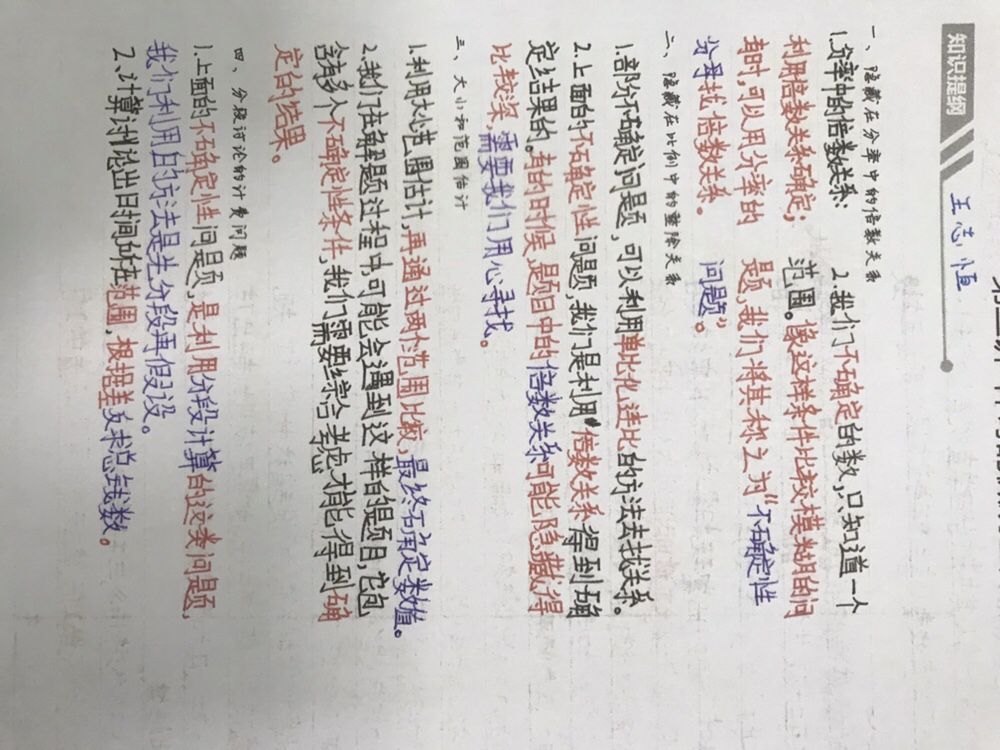 知识提纲
王志恒
一、隐藏在分率中的倍数关系
1.分率中的倍数关系: 2.我们不确定的数,只知道一个
利用倍数关系确定; 范围。像这样条件比较模糊的问
有时,可以用分率的 题,我们将其称之为“不确定性
分母找倍数关系。 问题”。
二、隐藏在比例中的整除关系
1.部分不确定问题,可以利用单比化连比的方法去找关系。
2.上面的不确定性问题,我们是利用“倍数关系得到确
定结果的。有的时候,题目中的倍数关系可能隐藏得
比较深,需要我们用心寻找。
三、大小和范围估计
1.利用大小范围估计,再通过两个范围比较,最终确定数值。
2.我们在解题过程中,可能会遇到这样的题目,它包
含有多个不确定性条件,我们需要综合考虑才能得到确
定的结果。
四、分段讨论的计费问题
1.上面的不确定性问题,是利用分段计算的这类问题,
我们利用的方法是先分段再假设。
2、计算讨论出日期所在范围,根据差额求总钱数。